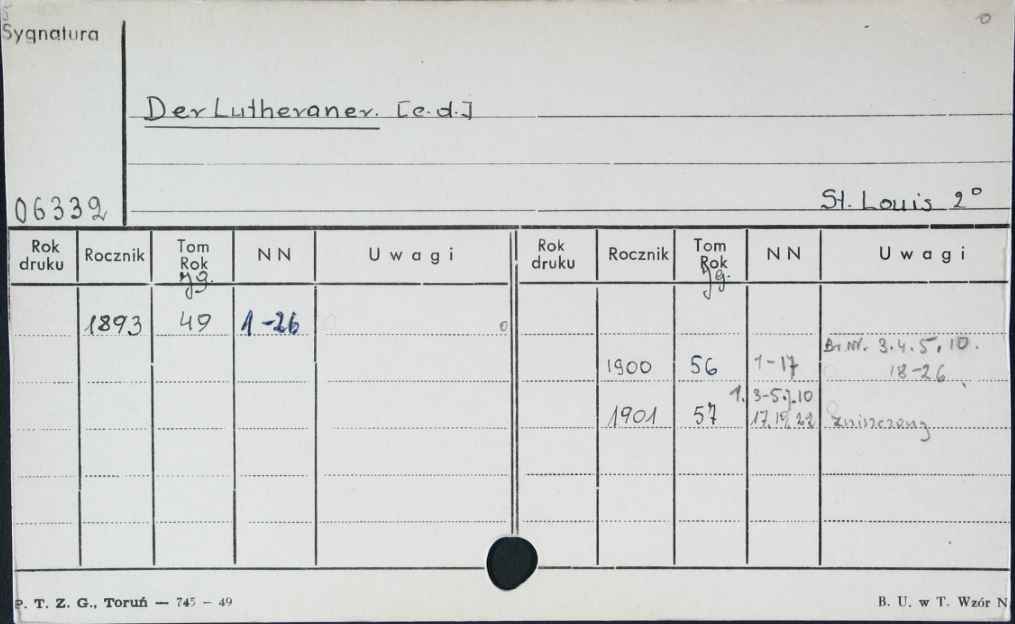 Sygnatura
0
Der Lutheraner. [c.d.]
06332
St. Louis 2°
Rok druku Rocznik Tom Rok Jg. NN Uwagi Rok druku Rocznik Tom Rok Jg. NN Uwagi
1893 49 1-26 0
Br. Nr. 3.4.5, 10.
1900 56 1-17 18-26
1. 3-5.7.10
1901 57 17.19.22 Zniszczony
P. T. Z. G., Toruń — 745 – 49
B. U. w T. Wzór N